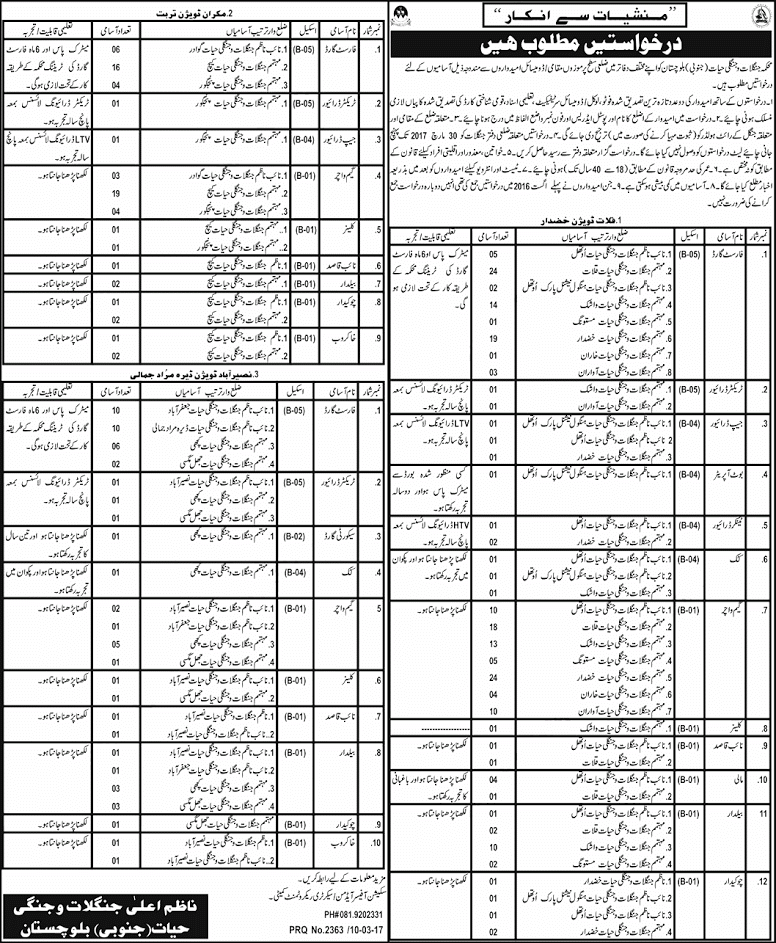 ”منشیات سے انکار“
درخواستیں مطلوب ہیں
محکمہ جنگلات و جنگلی حیات (جنوبی) بلوچستان کو اپنے مختلف دفاتر میں ضلعی سطح پر موزوں مقامی / ڈومیسائل امیدواروں سے مندرجہ ذیل آسامیوں کے لئے
درخواستیں مطلوب ہیں۔
1۔ درخواستوں کے ساتھ امیدوار کی دو عدد تازہ ترین تصدیق شدہ فوٹو، لوکل / ڈومیسائل سرٹیفکیٹ، تعلیمی اسناد، قومی شناختی کارڈ کی تصدیق شدہ کاپیاں لازمی
منسلک ہونی چاہیے۔ 2۔ درخواست میں امیدوار کے اضلاع کا نام اور پوسٹل ایڈریس اور فون نمبر واضح الفاظ میں درج ہونا چاہیے۔ 3۔ متعلقہ ضلع کے مقامی اور
متعلقہ جنگل کے رائٹ ہولڈر کو (ثبوت مہیا کرنے کی صورت میں) ترجیح دی جائے گی۔ 4۔ درخواستیں متعلقہ ضلعی دفتر جنگلات کو 30 مارچ 2017 تک پہنچ
جانی چاہیے لیٹ درخواستوں کو وصول نہیں کیا جائے گا۔ درخواست گزار متعلقہ دفتر سے رسید حاصل کریں۔ 5۔ خواتین، معذور اور اقلیتی افراد کیلئے قانون کے
مطابق کوٹہ مختص ہے۔ 6۔ عمر کی حد مروجہ قانون کے مطابق (18 سے 40 سال تک) ہونی چاہیے۔ 7۔ ٹیسٹ اور انٹرویو کیلئے امیدواروں کو بعد میں بذریعہ
اخبار مطلع کیا جائے گا۔ 8۔ آسامیوں میں کمی بیشی ہوسکتی ہے۔ 9۔ جن امیدواروں نے پہلے اگست 2016 میں درخواستیں جمع کی تھی انہیں دوبارہ درخواست جمع
کرانے کی ضرورت نہیں۔
1۔ قلات ڈویژن خضدار
نمبر شمار نام آسامی اسکیل ضلع وار ترتیب آسامیاں تعداد آسامی تعلیمی قابلیت / تجربہ
1. فارسٹ گارڈ (B-05) 1۔ نائب ناظم جنگلات و جنگلی حیات اوتھل 05 میٹرک پاس اور 6 ماہ فارسٹ
2۔ مہتمم جنگلات و جنگلی حیات قلات 24 گارڈ کی ٹریننگ محکمہ کے
3۔ مہتمم جنگلات و جنگلی حیات ہنگول نیشنل پارک اوتھل 02 طریقہ کار کے تحت لازمی ہو
4۔ مہتمم جنگلات و جنگلی حیات واشک 14 گی۔
5۔ مہتمم جنگلات و جنگلی حیات مستونگ 01
6۔ مہتمم جنگلات و جنگلی حیات خضدار 19
7۔ مہتمم جنگلات و جنگلی حیات خاران 01
8۔ مہتمم جنگلات و جنگلی حیات آواران 03
2. ٹریکٹر ڈرائیور (B-05) 1۔ مہتمم جنگلات و جنگلی حیات واشک 01 ٹریکٹر ڈرائیونگ لائسنس بمعہ
2۔ مہتمم جنگلات و جنگلی حیات آواران 01 پانچ سالہ تجربہ ہو۔
3. جیپ ڈرائیور (B-04) 1۔ نائب ناظم جنگلات و جنگلی حیات ہنگول نیشنل پارک اوتھل 01 LTV ڈرائیونگ لائسنس بمعہ
2۔ نائب ناظم جنگلات و جنگلی حیات اوتھل 01 پانچ سالہ تجربہ ہو۔
3۔ مہتمم جنگلات و جنگلی حیات خضدار 01
4. بوٹ آپریٹر (B-04) 1۔ نائب ناظم جنگلات و جنگلی حیات ہنگول نیشنل پارک اوتھل 01 کسی منظور شدہ بورڈ سے
میٹرک پاس ہو اور دو سالہ
تجربہ رکھتا ہو۔
5. ٹینکر ڈرائیور (B-04) 1۔ نائب ناظم جنگلات و جنگلی حیات اوتھل 01 HTV ڈرائیونگ لائسنس بمعہ
2۔ مہتمم جنگلات و جنگلی حیات خضدار 02 پانچ سالہ تجربہ ہو۔
6. کک (B-04) 1۔ نائب ناظم جنگلات و جنگلی حیات اوتھل 01 لکھنا پڑھنا جانتا ہو اور پکوان
2۔ مہتمم جنگلات و جنگلی حیات ہنگول نیشنل پارک اوتھل 01 میں تجربہ رکھتا ہو۔
3۔ مہتمم جنگلات و جنگلی حیات واشک 01
7. گیم واچر (B-01) 1۔ نائب ناظم جنگلات و جنگلی حیات اوتھل 10 لکھنا پڑھنا جانتا ہو۔
2۔ مہتمم جنگلات و جنگلی حیات قلات 18
3۔ مہتمم جنگلات و جنگلی حیات واشک 13
4۔ مہتمم جنگلات و جنگلی حیات مستونگ 05
5۔ مہتمم جنگلات و جنگلی حیات خضدار 24
6۔ مہتمم جنگلات و جنگلی حیات خاران 04
7۔ مہتمم جنگلات و جنگلی حیات آواران 10
8. کلینر (B-01) 1۔ مہتمم جنگلات و جنگلی حیات واشک 01 ----------------
9. نائب قاصد (B-01) 1۔ نائب ناظم جنگلات و جنگلی حیات اوتھل 01 لکھنا پڑھنا جانتا ہو۔
2۔ مہتمم جنگلات و جنگلی حیات واشک 01
10. مالی (B-01) 1۔ نائب ناظم جنگلات و جنگلی حیات اوتھل 04 لکھنا پڑھنا جانتا ہو اور باغبانی
2۔ مہتمم جنگلات و جنگلی حیات قلات 01 کا تجربہ رکھتا ہو۔
11 بیلدار (B-01) 1۔ نائب ناظم جنگلات و جنگلی حیات اوتھل 01 لکھنا پڑھنا جانتا ہو۔
2۔ مہتمم جنگلات و جنگلی حیات قلات 02
3۔ مہتمم جنگلات و جنگلی حیات واشک 10
4۔ مہتمم جنگلات و جنگلی حیات مستونگ 02
12. چوکیدار (B-01) 1۔ مہتمم جنگلات و جنگلی حیات خضدار 01 لکھنا پڑھنا جانتا ہو۔
2۔ مہتمم جنگلات و جنگلی حیات ہنگول نیشنل پارک اوتھل 01
3۔ نائب ناظم جنگلات و جنگلی حیات اوتھل 01
4۔ مہتمم جنگلات و جنگلی حیات خضدار 02
2۔ مکران ڈویژن تربت
نمبر شمار نام آسامی اسکیل ضلع وار ترتیب آسامیاں تعداد آسامی تعلیمی قابلیت / تجربہ
1. فارسٹ گارڈ (B-05) 1۔ نائب ناظم جنگلات و جنگلی حیات گوادر 06 میٹرک پاس اور 6 ماہ فارسٹ
2۔ مہتمم جنگلات و جنگلی حیات کیچ 16 گارڈ کی ٹریننگ محکمہ کے طریقہ
3۔ مہتمم جنگلات و جنگلی حیات پنجگور 04 کار کے تحت لازمی ہوگی۔
2. ٹریکٹر ڈرائیور (B-05) 1۔ مہتمم جنگلات و جنگلی حیات پنجگور 01 ٹریکٹر ڈرائیونگ لائسنس بمعہ
پانچ سالہ تجربہ ہو۔
3. جیپ ڈرائیور (B-04) 1۔ مہتمم جنگلات و جنگلی حیات پنجگور 01 LTV ڈرائیونگ لائسنس بمعہ پانچ
سالہ تجربہ ہو۔
4. گیم واچر (B-01) 1۔ نائب ناظم جنگلات و جنگلی حیات گوادر 03 لکھنا پڑھنا جانتا ہو۔
2۔ مہتمم جنگلات و جنگلی حیات کیچ 19
3۔ مہتمم جنگلات و جنگلی حیات پنجگور 04
5. کلینر (B-01) 1۔ مہتمم جنگلات و جنگلی حیات کیچ 01 لکھنا پڑھنا جانتا ہو۔
2۔ مہتمم جنگلات و جنگلی حیات پنجگور 01
6. نائب قاصد (B-01) 1۔ ناظم جنگلات و جنگلی حیات کیچ 01 لکھنا پڑھنا جانتا ہو۔
7. بیلدار (B-01) 1۔ مہتمم جنگلات و جنگلی حیات کیچ 02 لکھنا پڑھنا جانتا ہو۔
8. چوکیدار (B-01) 1۔ ناظم جنگلات و جنگلی حیات کیچ 01 لکھنا پڑھنا جانتا ہو۔
2۔ مہتمم جنگلات و جنگلی حیات کیچ 02
9. خاکروب (B-01) 1۔ ناظم جنگلات و جنگلی حیات کیچ 01 لکھنا پڑھنا جانتا ہو۔
2۔ مہتمم جنگلات و جنگلی حیات کیچ 02
3۔ نصیر آباد ڈویژن ڈیرہ مراد جمالی
نمبر شمار نام آسامی اسکیل ضلع وار ترتیب آسامیاں تعداد آسامی تعلیمی قابلیت / تجربہ
1. فارسٹ گارڈ (B-05) 1۔ نائب ناظم جنگلات و جنگلی حیات جعفر آباد 10 میٹرک پاس اور 6 ماہ فارسٹ
2۔ نائب ناظم جنگلات و جنگلی حیات ڈیرہ مراد جمالی 10 گارڈ کی ٹریننگ محکمہ کے طریقہ
3۔ مہتمم جنگلات و جنگلی حیات کچھی 06 کار کے تحت لازمی ہوگی۔
4۔ مہتمم جنگلات و جنگلی حیات جھل مگسی 02
2. ٹریکٹر ڈرائیور (B-05) 1۔ نائب ناظم جنگلات و جنگلی حیات نصیر آباد 01 ٹریکٹر ڈرائیونگ لائسنس بمعہ
2۔ مہتمم جنگلات و جنگلی حیات کچھی 01 پانچ سالہ تجربہ ہو۔
3۔ مہتمم جنگلات و جنگلی حیات جھل مگسی 01
3. سیکورٹی گارڈ (B-02) 1۔ مہتمم جنگلات و جنگلی حیات کچھی 01 لکھنا پڑھنا جانتا ہو اور تین سال
کا تجربہ رکھتا ہو۔
4. کک (B-04) 1۔ مہتمم جنگلات و جنگلی حیات کچھی 01 لکھنا پڑھنا جانتا ہو اور پکوان میں
تجربہ رکھتا ہو۔
5 گیم واچر (B-01) 1۔ نائب ناظم جنگلات و جنگلی حیات نصیر آباد 02 لکھنا پڑھنا جانتا ہو۔
2۔ نائب ناظم جنگلات و جنگلی حیات جعفر آباد 01
3۔ مہتمم جنگلات و جنگلی حیات کچھی 05
4۔ مہتمم جنگلات و جنگلی حیات جھل مگسی 01
6. کلینر (B-01) 1۔ نائب ناظم جنگلات و جنگلی حیات نصیر آباد 01 لکھنا پڑھنا جانتا ہو۔
2۔ مہتمم جنگلات و جنگلی حیات جھل مگسی 01
7. نائب قاصد (B-01) 1۔ ناظم جنگلات و جنگلی حیات نصیر آباد 01 لکھنا پڑھنا جانتا ہو۔
2۔ نائب ناظم جنگلات و جنگلی حیات نصیر آباد 01
8. بیلدار (B-01) 1۔ نائب ناظم جنگلات و جنگلی حیات نصیر آباد 01 لکھنا پڑھنا جانتا ہو۔
2۔ نائب ناظم جنگلات و جنگلی حیات جعفر آباد 01
3۔ مہتمم جنگلات و جنگلی حیات کچھی 03
4۔ مہتمم جنگلات و جنگلی حیات جھل مگسی 03
9. چوکیدار (B-01) مہتمم جنگلات و جنگلی حیات جھل مگسی 01 لکھنا پڑھنا جانتا ہو۔
10. خاکروب (B-01) 1۔ ناظم جنگلات و جنگلی حیات نصیر آباد 01 لکھنا پڑھنا جانتا ہو۔
2۔ نائب ناظم جنگلات و جنگلی حیات نصیر آباد 01
مزید معلومات کے لیے رابطہ کریں۔
سیکشن آفیسر ایڈمن / سیکرٹری ریکروٹمنٹ کمیٹی۔
PH#081.9202331
PRQ No.2363 /10-03-17
ناظم اعلیٰ جنگلات و جنگلی
حیات (جنوبی) بلوچستان